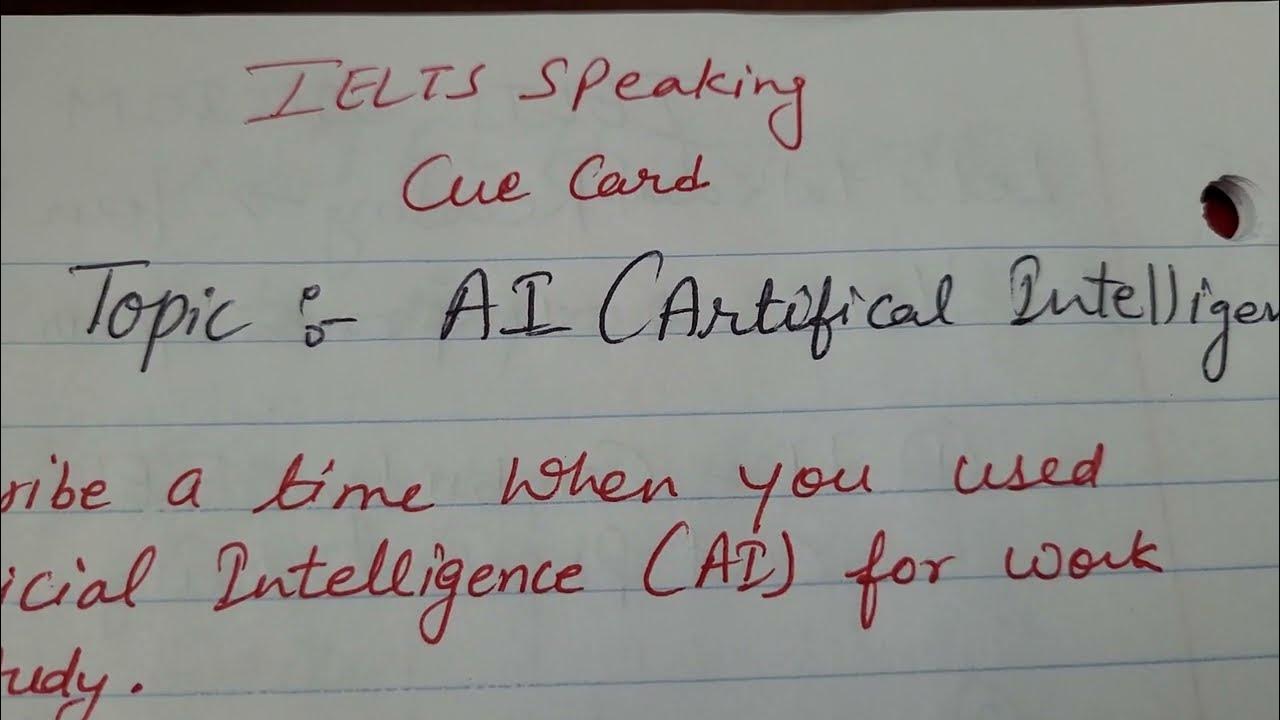 IELTS Speaking
Cue Card
Topic :- AI (Artifical Intelligen
ribe a time when you used
icial Intelligence (AI) for work
udy.